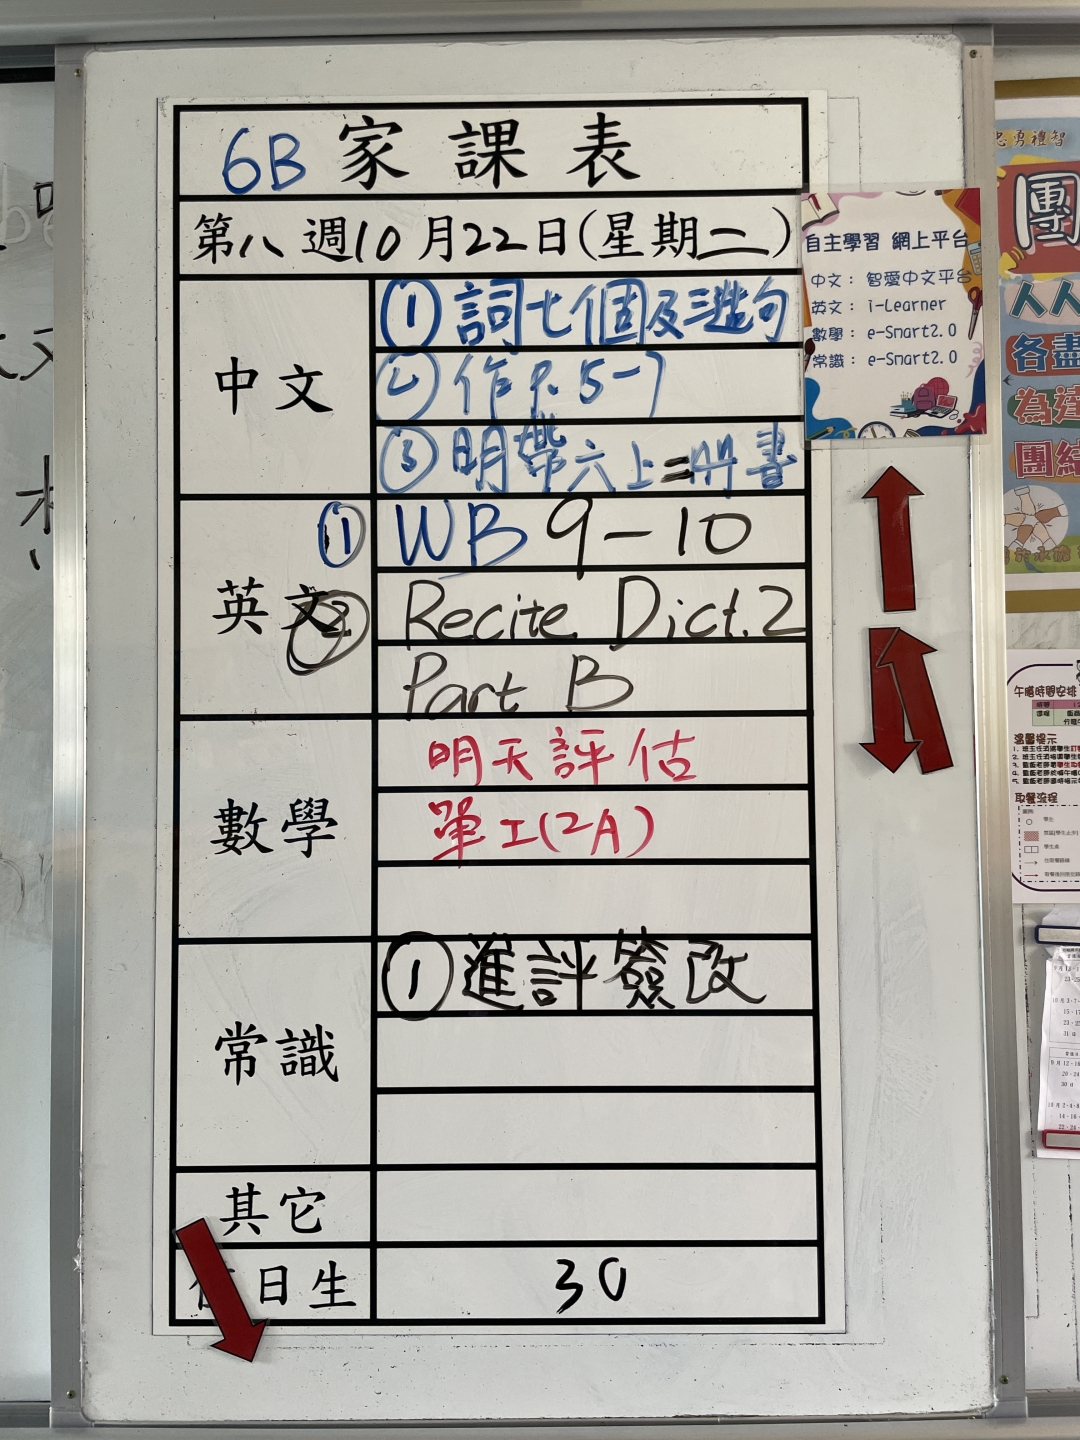 6B 家課表
第八週10月22日(星期二)
中文
① 詞七個及三造句
② 作 P. 5-7
③ 明帶六上二冊書
英文
① WB 9-10
② Recite Dict. 2
Part B
數學
明天評估
單工(2A)
常識
① 進評簽改
其它
日生
30
自主學習 網上平台
中文： 智愛中文平台
英文： i-Learner
數學： e-Smart2.0
常識： e-Smart2.0
勇禮智
團
人人
各盡
為達
團結
午膳時間安排
溫馨提示
取餐流程